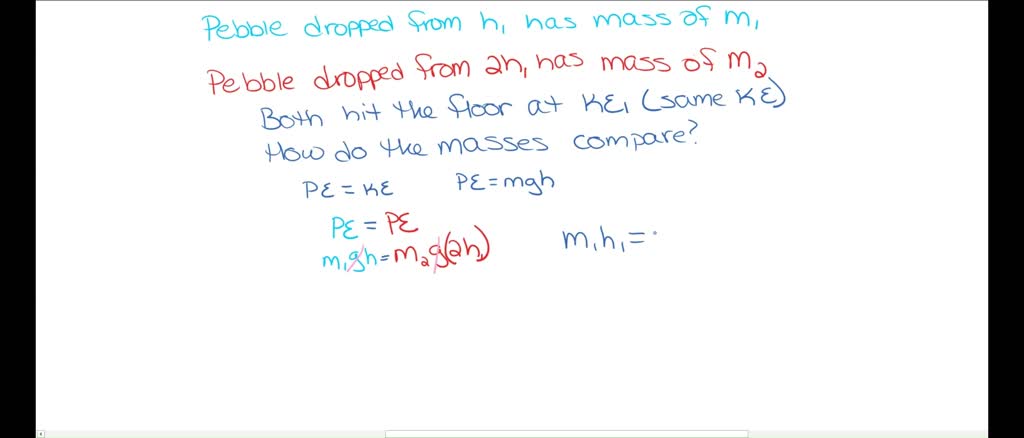 Pebble dropped from h₁ has mass of m₁
Pebble dropped from 2h₁ has mass of m₂
Both hit the floor at KE₁ (same KE)
How do the masses compare?
PE = KE PE = mgh
PE = PE
m₁gh = m₂g(2h₁) m₁h₁ =